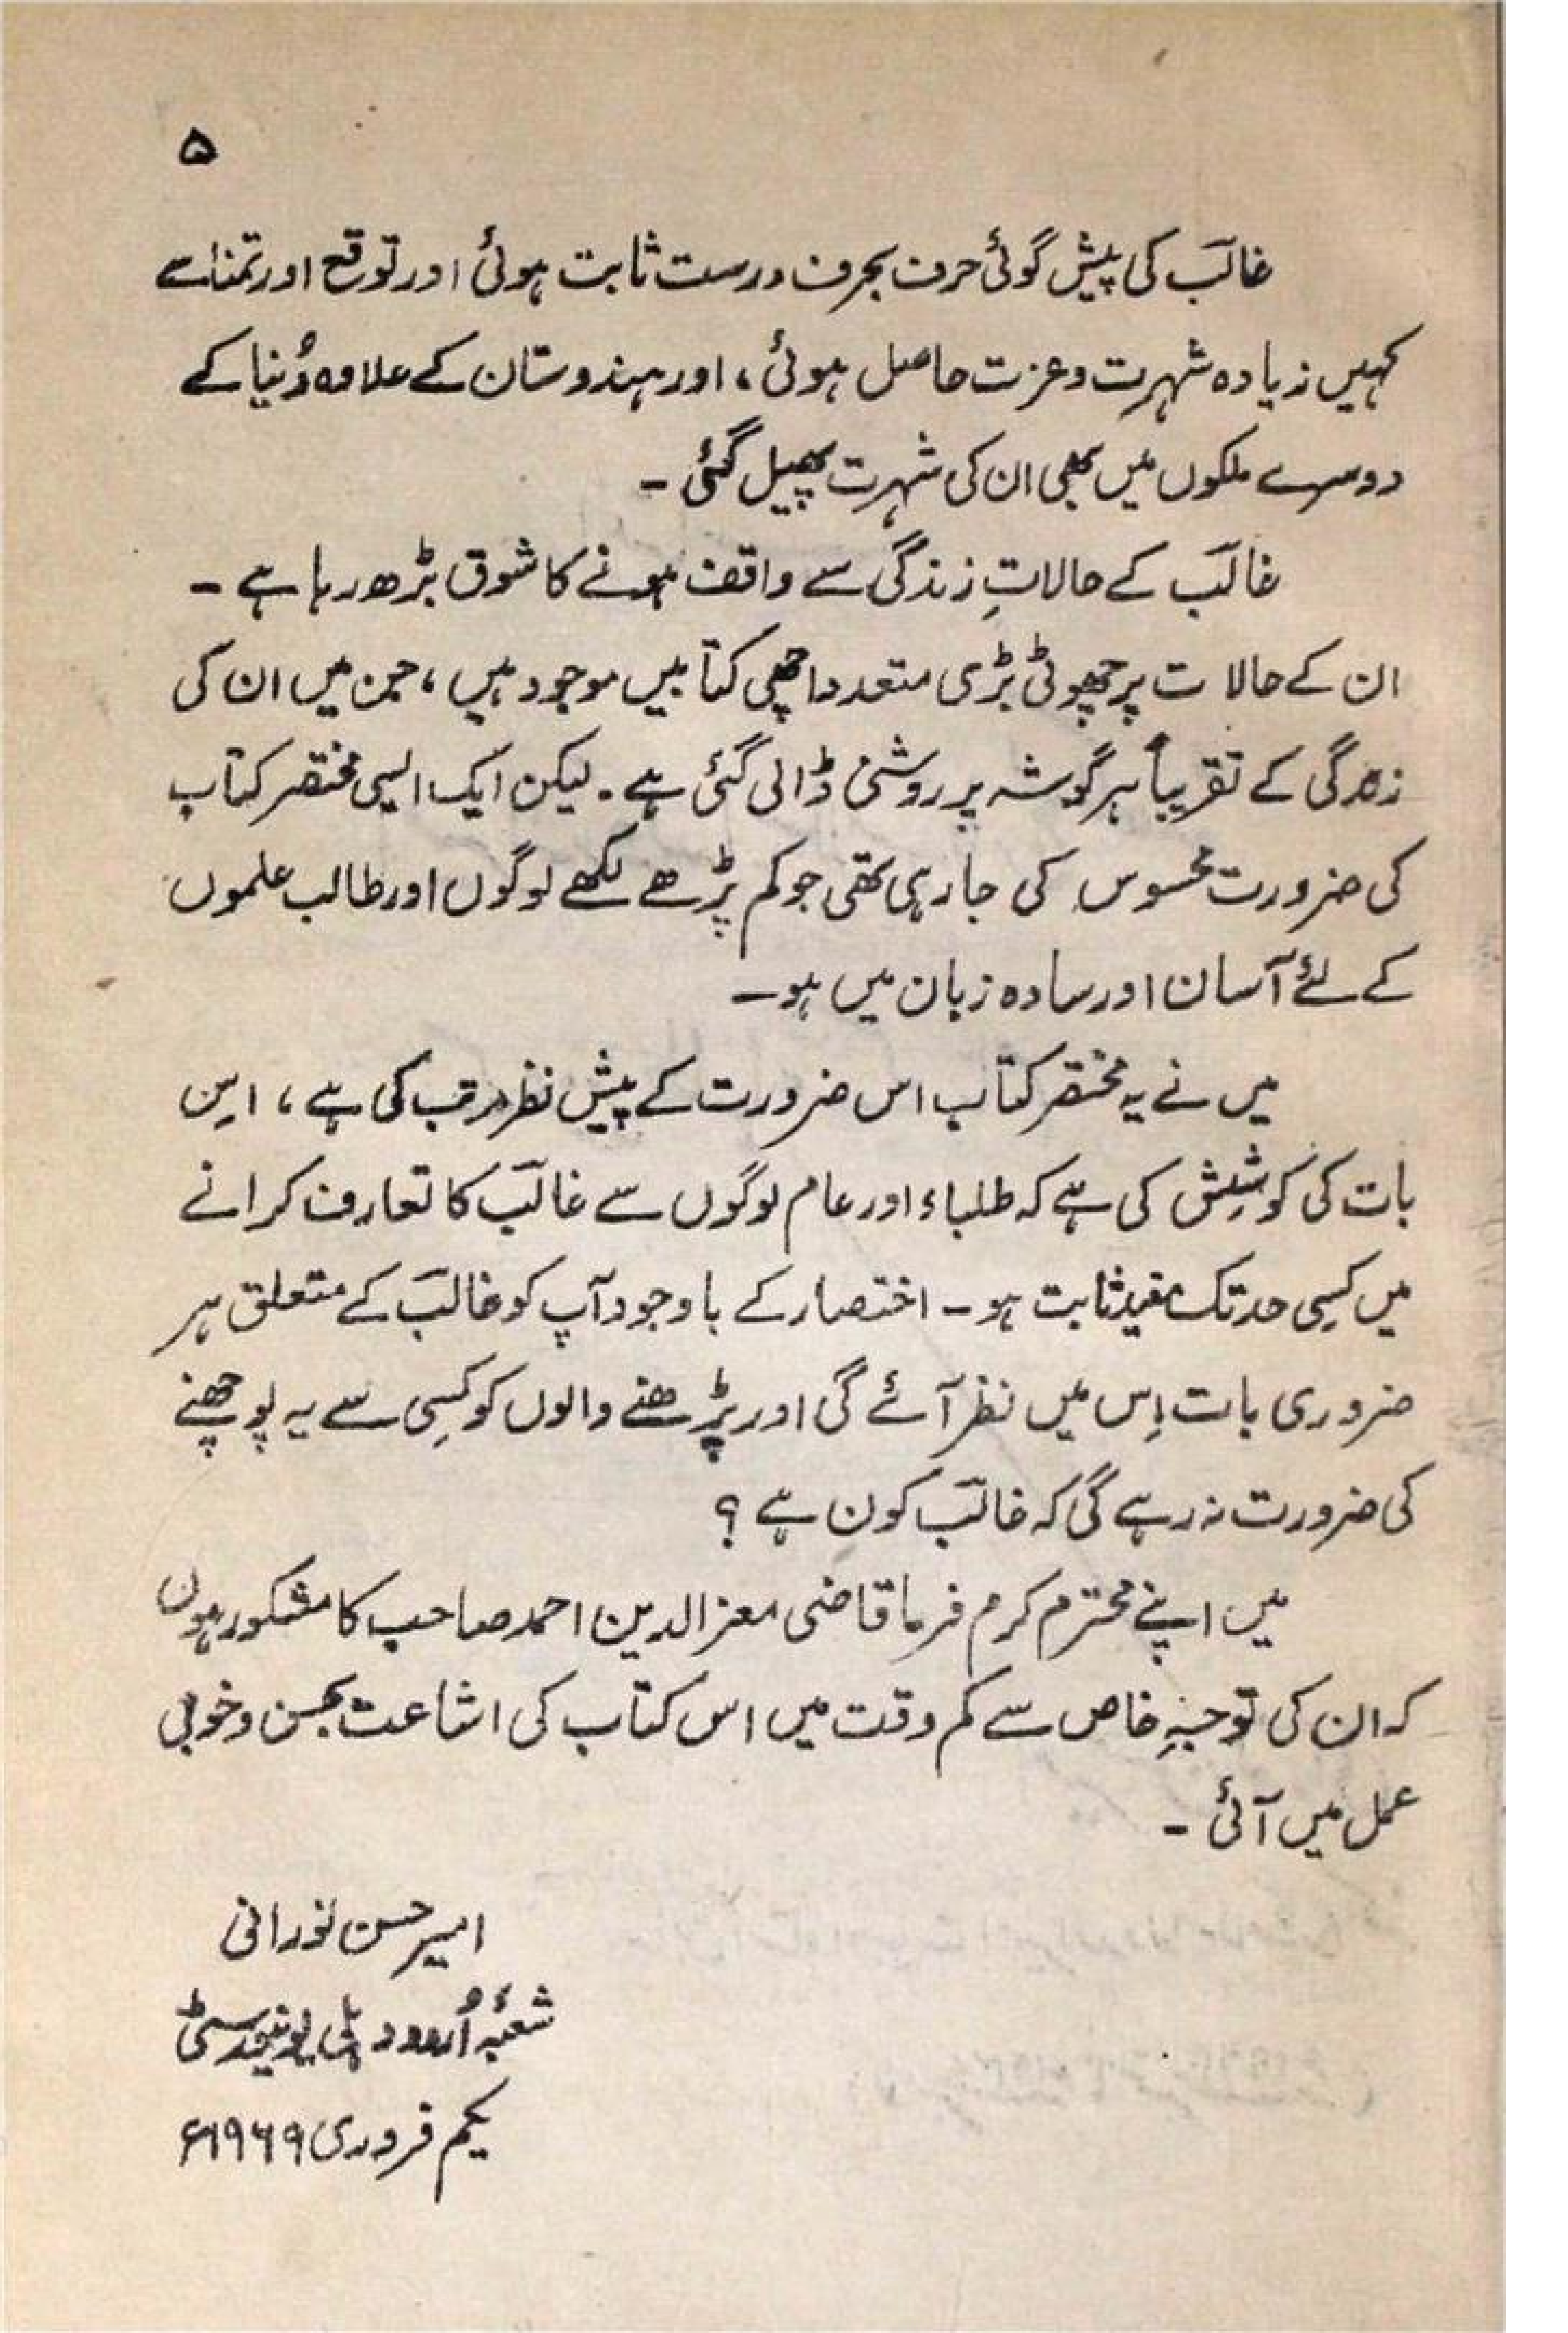 ۵
غالبؔ کی پیش گوئی حرف بحرف درست ثابت ہوئی اور توقع اور تمنا سے
کہیں زیادہ شہرت و عزت حاصل ہوئی، اور ہندوستان کے علاوہ دُنیا کے
دوسرے ملکوں میں بھی ان کی شہرت پھیل گئی۔
غالبؔ کے حالاتِ زندگی سے واقف ہونے کا شوق بڑھ رہا ہے۔
ان کے حالات پر چھوٹی بڑی متعدد اچھی کتابیں موجود ہیں، جن میں ان کی
زندگی کے تقریباً ہر گوشہ پر روشنی ڈالی گئی ہے۔ لیکن ایک ایسی مختصر کتاب
کی ضرورت محسوس کی جا رہی تھی جو کم پڑھے لکھے لوگوں اور طالب علموں
کے لئے آسان اور سادہ زبان میں ہو۔
میں نے یہ مختصر کتاب اس ضرورت کے پیش نظر مرتب کی ہے، اس
بات کی کوشِش کی ہے کہ طلباء اور عام لوگوں سے غالبؔ کا تعارف کرانے
میں کسی حد تک مفید ثابت ہو۔ اختصار کے باوجود آپ کو غالبؔ کے متعلق ہر
ضروری بات اِس میں نظر آئے گی اور پڑھنے والوں کو کسِی سے یہ پوچھنے
کی ضرورت نہ رہے گی کہ غالبؔ کون ہے؟
میں اپنے محترم کرم فرما قاضی معز الدین احمد صاحب کا مشکور ہوں
کہ ان کی توجہِ خاص سے کم وقت میں اس کتاب کی اشاعت بحسن و خوبی
عمل میں آئی۔
امیر حسن نورانی
شعبۂ اُردو دہلی یونیورسٹی
یکم فروری ۱۹۶۹ء